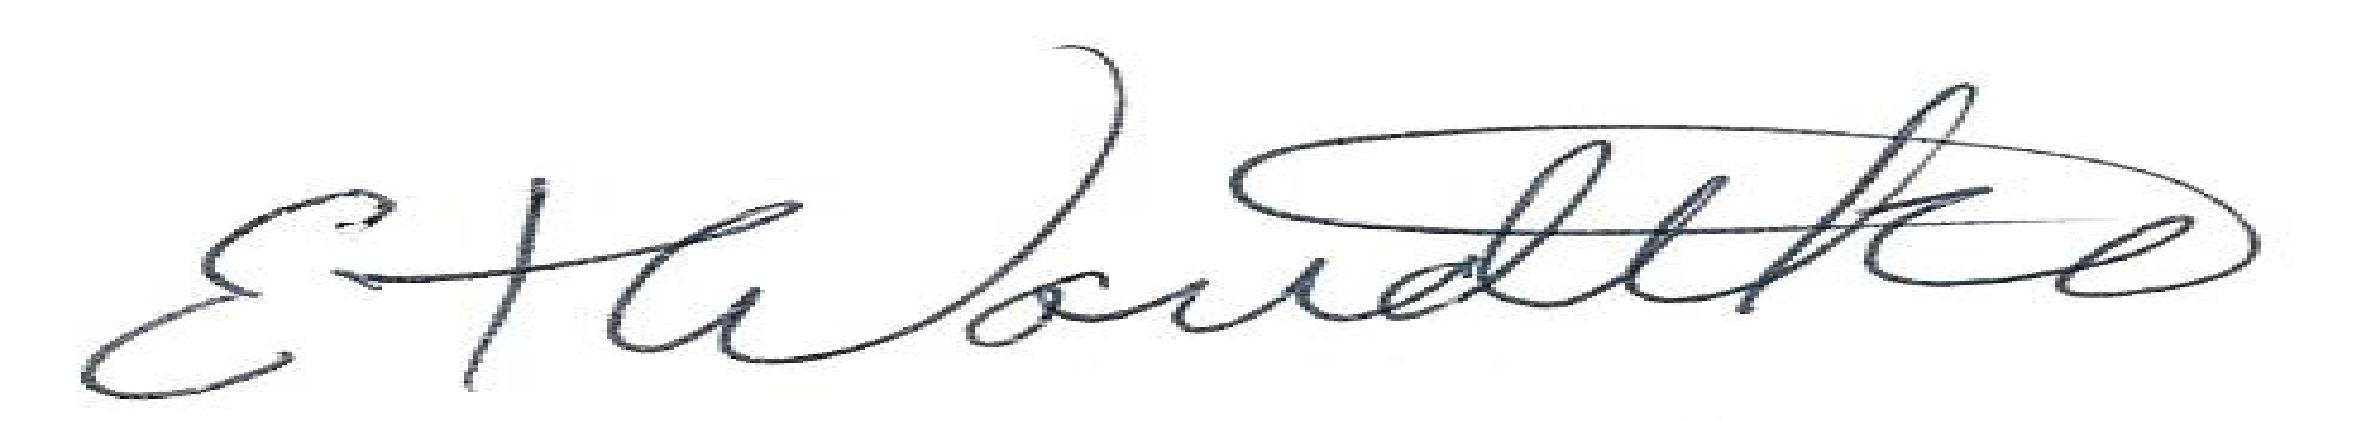 E H Woudtke